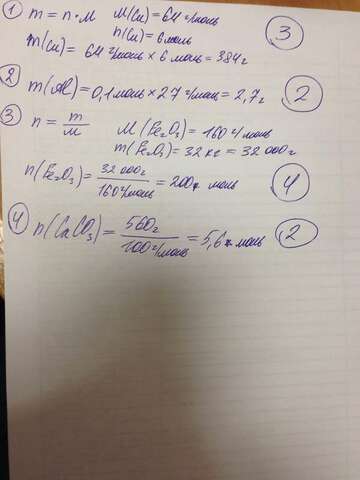 ① m = n · M   M(Cu) = 64 г/моль
n(Cu) = 6 моль   ③
m(Cu) = 64 г/моль × 6 моль = 384 г
② m(Al) = 0,1 моль × 27 г/моль = 2,7 г   ②
③ n = m/M   M(Fe₂O₃) = 160 г/моль
m(Fe₂O₃) = 32 кг = 32 000 г
n(Fe₂O₃) = 32 000 г / 160 г/моль = 200 моль   ④
④ n(CaCO₃) = 560 г / 100 г/моль = 5,6 моль   ②